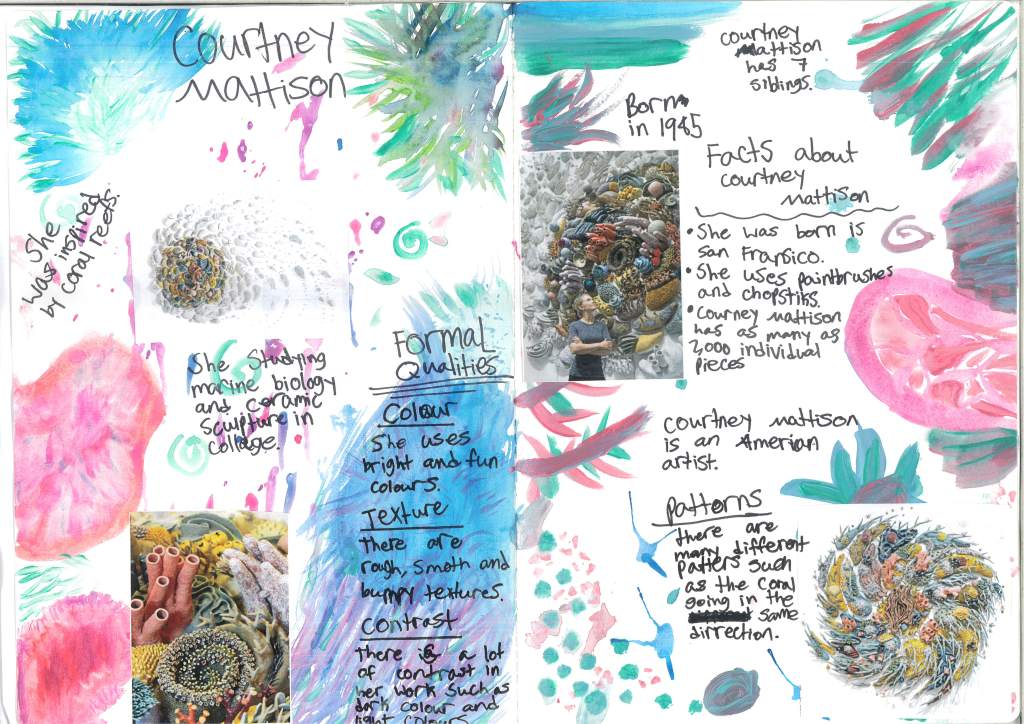 Courtney
Mattison
She
was inspired
by coral reefs.
She Studying
marine biology
and Ceramic
Sculpture in
College.
Formal
Qualities
Colour
She uses
bright and fun
colours.
Texture
There are
rough, smoth and
bumpy textures.
Contrast
There is a lot
of contrast in
her work such as
dark colour and
light colours
courtney
mattison
has 7
siblings.
Born
in 1985
Facts about
courtney
mattison
• She was born is
San Fransico.
• She uses paintbrushes
and chopstiks.
• Courney mattison
has as many as
2,000 individual
pieces
courtney mattison
is an Amerian
artist.
Patterns
there are
many different
patters such
as the coral
going in the
same
dirrection.